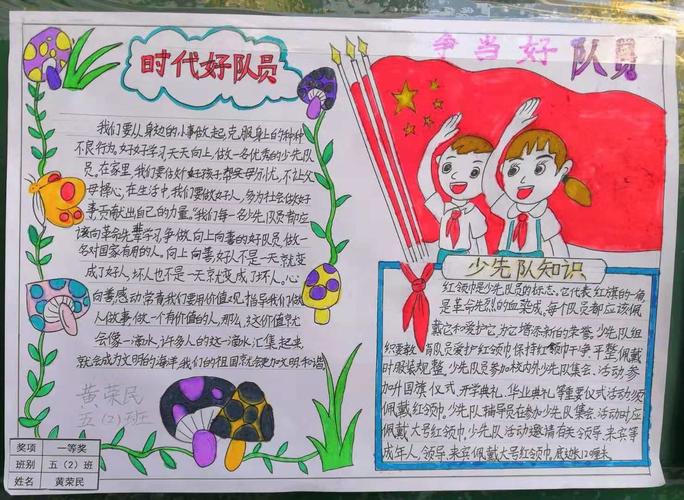 时代好队员
我们要从身边的小事做起，克服身上的种种
不良行为，好好学习，天天向上，做一名优秀的少先队
员。在家里，我们要做好孩子，帮父母分忧，不让父
母操心，在生活中，我们要做好人，多为社会做好
事，贡献出自己的力量。我们每一名少先队员都应
该向革命先辈学习，争做向上向善的好队员，做一
名对国家有用的人。向上向善，好人不是一天就变
成了好人，坏人也不是一天就变成了坏人。心
向善感动常青，我们要用价值观指导我们做
人做事，做一个有价值的人，那么，这价值就
会像一滴水，许多人的这一滴水，汇集起来，
就会成为文明的海洋，我们的祖国就会更加文明和谐
黄荣民
五（2）班
奖项 一等奖
班别 五（2）班
姓名 黄荣民
争当好队员
少先队知识
红领巾是少先队员的标志，它代表红旗的一角，
是革命先烈的血染成。每个队员都应该佩
戴它和爱护它，为它增添新的荣誉。少先队组
织要教育队员爱护红领巾，保持红领巾干净、平整，佩戴
时服装规整。少先队员参加校内外少先队集会、活动，参
加升国旗仪式、开学典礼、毕业典礼等重要仪式活动须
佩戴红领巾，少先队辅导员在参加少先队集会、活动时应
佩戴大号红领巾，少先队活动邀请有关领导、来宾等
成年人，领导、来宾佩戴大号红领巾，底边长12厘米。